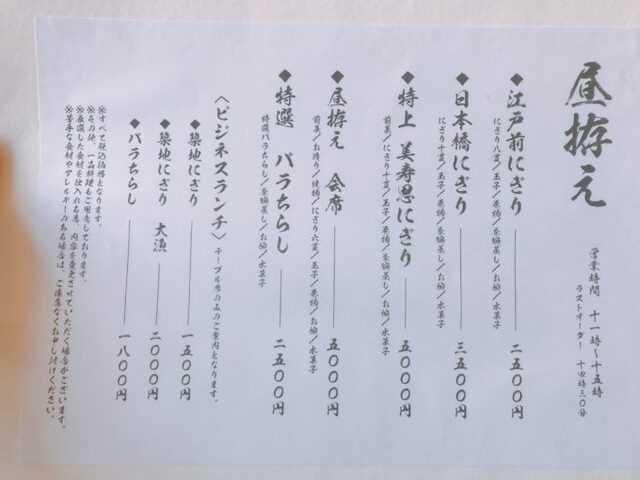 昼拵え
営業時間 十一時〜十五時
ラストオーダー 十四時三〇分
◆江戸前にぎり 二五〇〇円
にぎり八貫／玉子／巻物／茶碗蒸し／お椀／水菓子
◆日本橋にぎり 三五〇〇円
にぎり十貫／玉子／巻物／茶碗蒸し／お椀／水菓子
◆特上 美寿思にぎり 五〇〇〇円
前菜／にぎり十貫／玉子／巻物／茶碗蒸し／お椀／水菓子
◆昼拵え 会席 五〇〇〇円
前菜／お造り／焼物／にぎり六貫／玉子／巻物／お椀／水菓子
◆特選 バラちらし 二五〇〇円
特選バラちらし／茶碗蒸し／お椀／水菓子
〈ビジネスランチ〉テーブル席のみのご案内となります。
◆築地にぎり 一五〇〇円
◆築地にぎり 大漁 二〇〇〇円
◆バラちらし 一八〇〇円
※すべて税込価格となります。
※その他、一品料理もご用意しております。
※厳選した食材を仕入れる為、内容を変更させていただく場合がございます。
※苦手な食材やアレルギーのある場合は、ご遠慮なくお申し付けください。